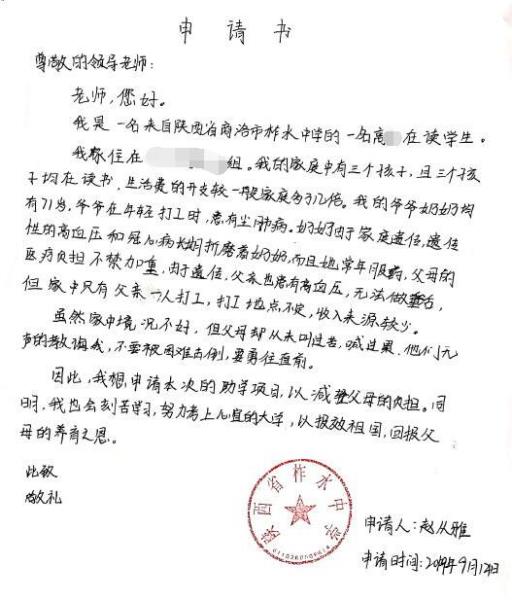 申请书
尊敬的领导老师：
老师，您好。
我是一名来自陕西省商洛市柞水中学的一名高 在读学生。
我家住在 组。我的家庭中有三个孩子，且三个孩
子均在读书，生活费的开支较一般家庭多了几倍。我的爷爷奶奶均
有71岁，爷爷在年轻打工时，患有尘肺病。奶奶由于家庭遗传，遗传
性的高血压和冠心病长期折磨着奶奶，而且她常年服药，父母的
医疗负担不禁加重，由于遗传，父亲也患有高血压，无法做重活，
但家中只有父亲一人打工，打工地点不定，收入来源较少。
虽然家中境况不好，但父母却从未叫过苦，喊过累，他们无
声的教诲我，不要被困难击倒，要勇往直前。
因此，我想申请本次的助学项目，以减轻父母的负担。同
时，我也会刻苦学习，努力考上心宜的大学，以报效祖国，回报父
母的养育之恩。
此致
敬礼
陕西省柞水中学
申请人：赵从雅
申请时间：2019年9月12日